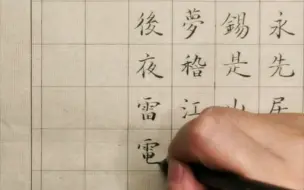 永先居
錫是山
夢稽江
後夜雷電